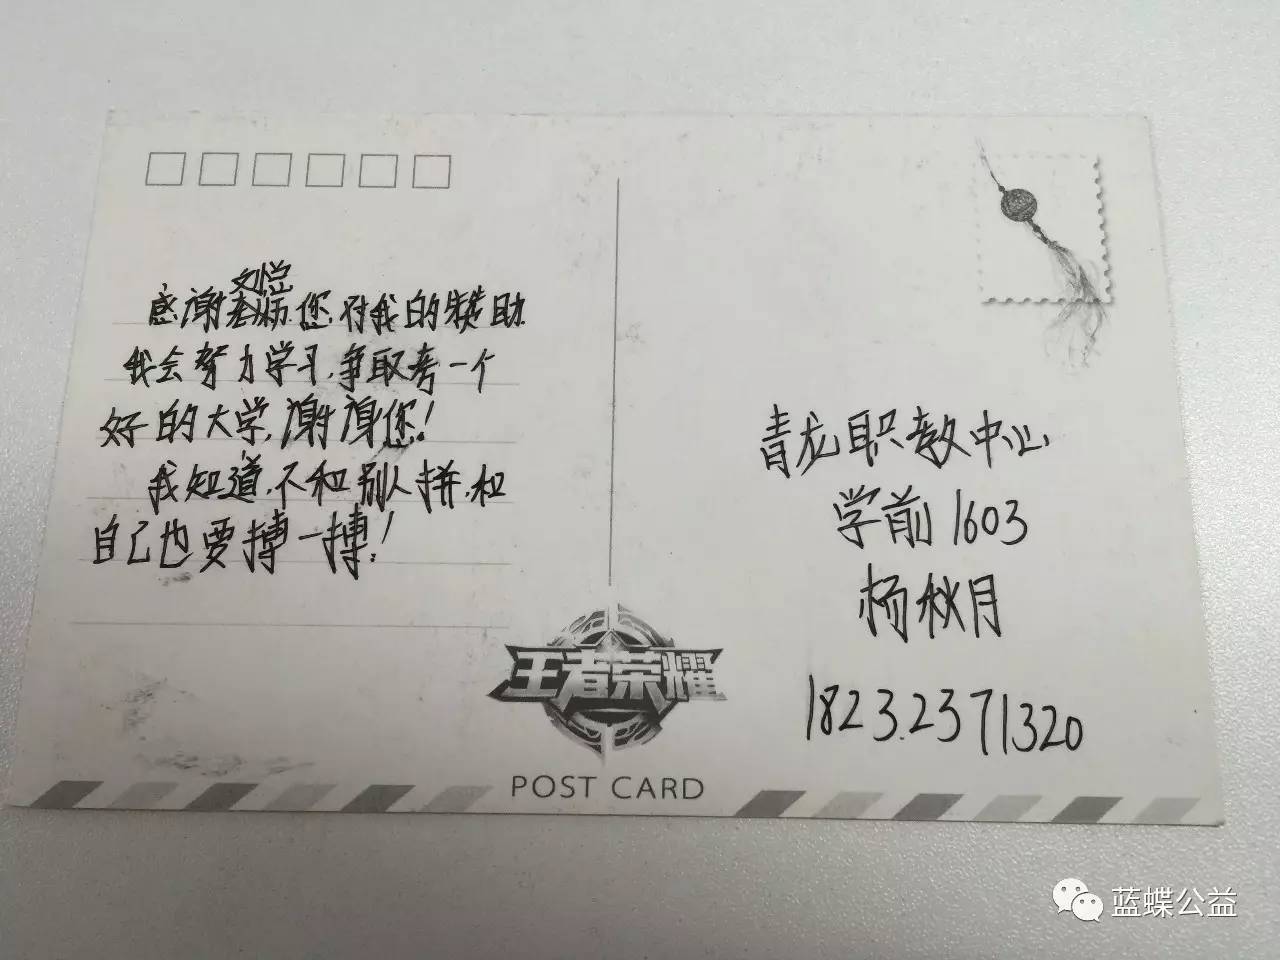 文恺
感谢老师您,对我的赞助
我会努力学习,争取考一个
好的大学,谢谢您!
我知道,不和别人拼,和
自己也要搏一搏!
青龙职教中心
学前1603
杨秋月
18232371320
王者荣耀
POST CARD
蓝蝶公益